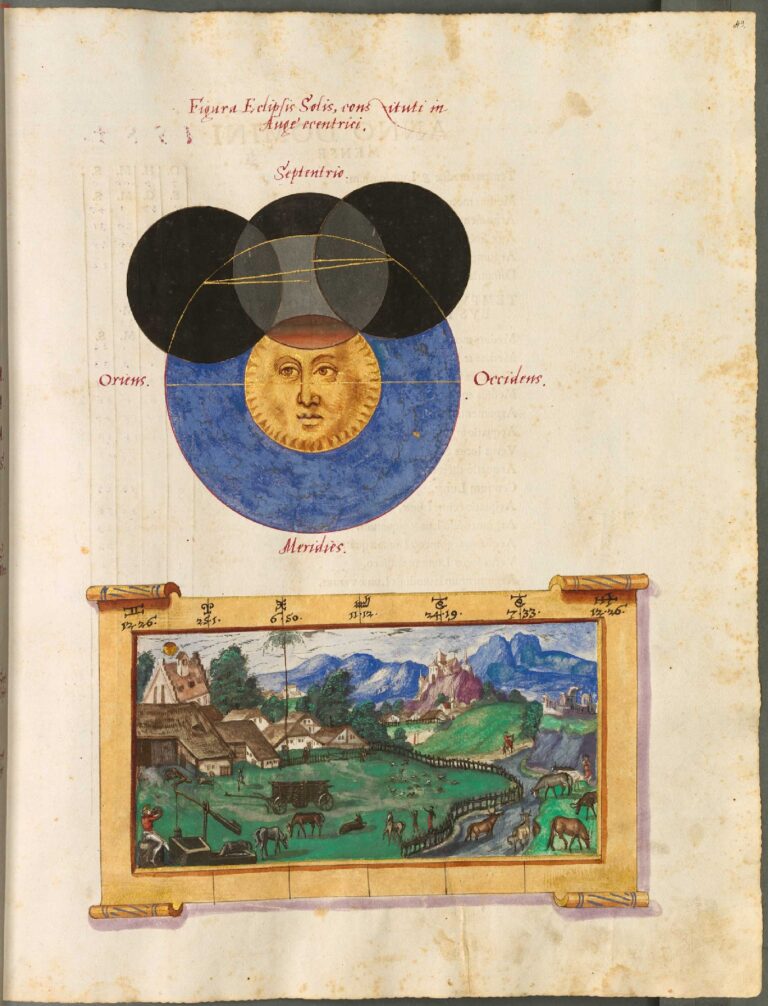 Figura Eclipsis Solis, constituti in
Auge ecentrici.
Septentrio.
Oriens.
Occidens.
Meridies.
12·26. 6·50. 11·12. 24·19. 7·33. 12·26.